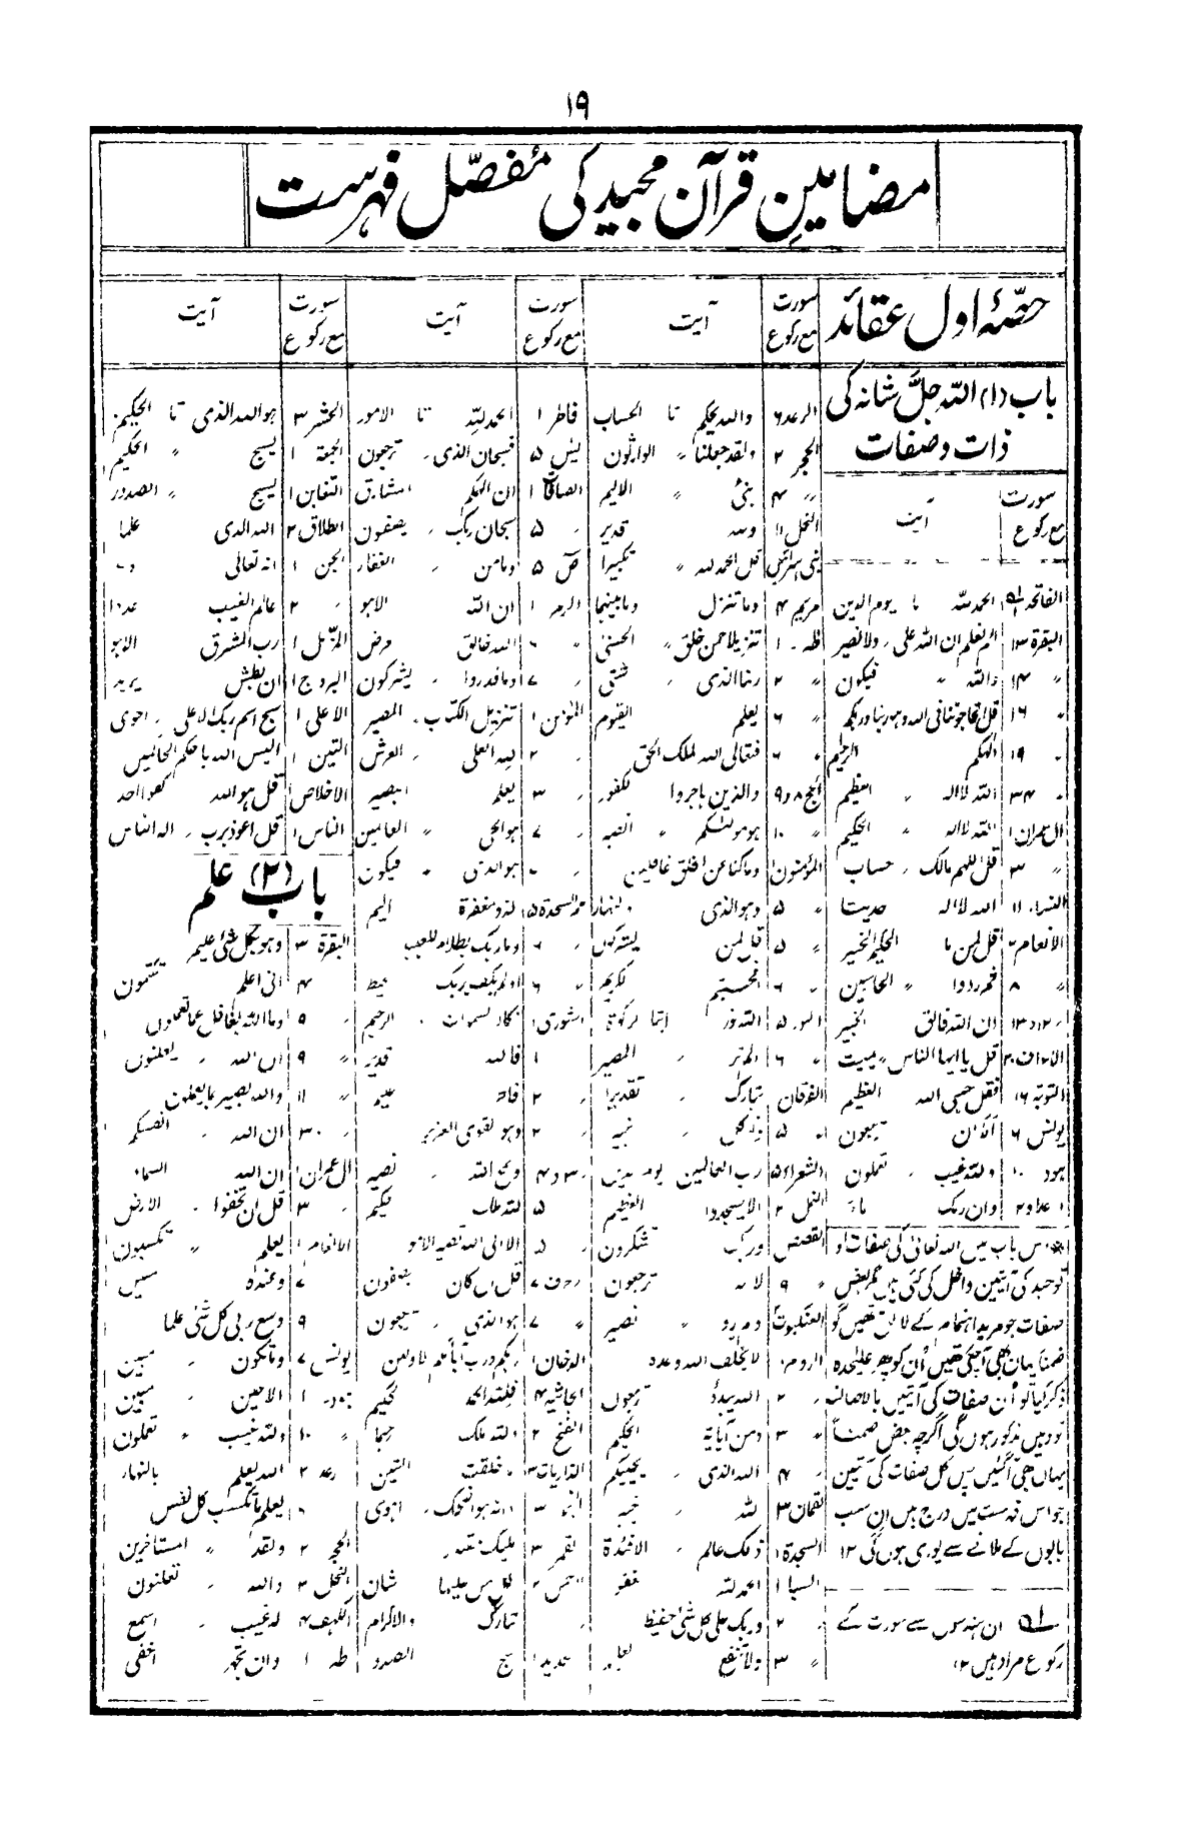 ۱۹
مضامینِ قرآن مجید کی مفصّل فہرست
حصّۂ اول عقائد
باب (۱) اللہ جلَّ شانہ کی
ذات و صفات
سورت مع رکوع آیت
الفاتحہ ۱ الحمد للہ تا یوم الدین
البقرۃ ۱۳ الم تعلم ان اللہ علی ولا نصیر
〃 ۱۴ واللہ 〃 فیکون
〃 ۱۶ قل اتحاجوننا فی اللہ وہو ربنا وربکم
〃 ۱۹ الہکم الرحیم
〃 ۳۴ اللہ لا الہ 〃 العظیم
آل عمران ۱ اللہ لا الہ 〃 الحکیم
〃 ۳ قل اللہم مالک حساب
النساء ۱۱ اللہ لا الہ حدیثا
الانعام ۲ قل لمن ما الحکیم الخبیر
〃 ۸ ثم ردوا 〃 الحاسبین
۱۲ و ۱۳ ان اللہ فالق الخبیر
۲۰ قل یا ایہا الناس 〃 یمیت
التوبۃ ۱۶ فقل حسبی اللہ العظیم
یونس ۶
ہود ۱۰ وللہ غیب تعملون
وان ربک
اس باب میں اللہ تعالیٰ کی صفات و
توحید کی آیتیں داخل کی گئی ہیں مگر بعض
صفات جو مزید اہتمام کے لائق تھیں گو
ضمناً یہاں بھی آچکی تھیں اُن کو پھر علیحدہ
ذکر کیا تو اُن صفات کی آیتیں بالاصالۃ
تو وہیں مذکور ہوں گی اگرچہ بعض ضمناً
یہاں بھی آگئیں پس کل صفات کی آیتیں
جو اس فہرست میں درج ہیں ان سب
بابوں کے ملانے سے پوری ہوں گی ۱۲
ان ہندسوں سے سورت کے
رکوع مراد ہیں ۱۲
سورت مع رکوع آیت
الرعد ۶ واللہ یحکم تا الحساب
الحجر ۲ ولقد جعلنا 〃 الوارثون
〃 ۴ نبئ 〃 الالیم
النحل ۱۱ وللہ قدیر
بنی اسرائیل قل الحمد للہ 〃 تکبیرا
مریم ۴ وما تنزل وما بینہما
طٰہٰ ۱ تنزیلا ممن خلق 〃 الحسنیٰ
〃 ۲ ربنا الذی شتیٰ
〃 ۶ یعلم القیوم
〃 ۶ فتعالی اللہ الملک الحق
الحج ۸ و ۹ والذین ہاجروا لکفور
〃 ۱۰ ہو مولٰکم 〃 النصیر
المؤمنون وما کنا عن الخلق غافلین
〃 ۵ وہو الذی
〃 ۵ قل لمن یشرکون
〃 ۶ افحسبتم الکریم
النور ۵ اللہ نور
〃 ۶ الم تر 〃 المصیر
الفرقان تبارک تقدیرا
الشعراء ۵ رب العالمین یوم
النمل ۲ الا یسجدوا العظیم
القصص وربک شکرون
〃 ۹ ترجعون
العنکبوت 〃 نصیر
الروم ۱ لا یخلف اللہ وعدہ
۲ اللہ یبدؤ ترجعون
۳ ومن آیاتہ الحکیم
۴ اللہ الذی یحییکم
لقمان ۳ للہ خبیر
السجدۃ ۱ ذلک عالم الافئدۃ
السبا ۱ الحمد للہ
۲ وربک علی کل شئ حفیظ
〃 ۳ ولا تنفع
سورت مع رکوع آیت
فاطر ۱ الحمد للہ تا الامور
یٰس ۵ فسبحان الذی ترجعون
الصافات ۱ ان الہکم المشارق
۵ سبحان ربک یصفون
صٓ ۵ وما من الغفار
الزمر ۱ ان اللہ الا ہو
〃 ۶ اللہ خالق ارض
〃 ۷ وما قدروا یشرکون
المؤمن ۱ تنزیل الکتٰب المصیر
۲ العرش
۳ یعلم البصیر
〃 ۷ ہو الحی 〃 العالمین
ہو الذی فیکون
حم السجدۃ ۵ لذو مغفرۃ الیم
۶ وما ربک بظلام للعبید
〃 ۶ اولم یکف بربک محیط
الشوریٰ ۱ تکاد السموات الرحیم
۱ فاللہ قدیر
〃 ۲ علیم
۲ وہو القوی العزیز
۳ و ۴ نصیر
۵
۵ الا الی اللہ تصیر الامور
زخرف ۷ قل ان کان یصفون
〃 ۷ ہو الذی ترجعون
الدخان ۱ ربکم ورب آبائکم الاولین
الجاثیۃ ۴ فللہ الحمد حکیم
الفتح ۲ وللہ ملک رحیما
الذاریات ۳ خلقت المتین
النجم ۳ وانہ ہو اضحک اہوی
القمر ۳ ملیک مقتدر
الرحمن ۲ کل من علیہا شان
تبارک والاکرام
حدید ۱ سبح الصدور
سورت مع رکوع آیت
الحشر ۳ ہو اللہ الذی تا الحکیم
الجمعۃ ۱ یسبح 〃 الحکیم
التغابن ۱ یسبح 〃 الصدور
الطلاق ۲ اللہ الذی علما
الجن ۱ انہ تعالی
〃 ۲ عالم الغیب عددا
المزّمل ۱ رب المشرق الا ہو
البروج ۱ ان بطش یرید
الاعلی ۱ سبح اسم ربک الاعلی احوی
التین ۱ الیس اللہ باحکم الحاکمین
الاخلاص ۱ قل ہو اللہ کفوا احد
الناس ۱ قل اعوذ برب الہ الناس
باب (۲) علم
البقرۃ ۳ وہو بکل شئ علیم
〃 ۴ انی اعلم تکتمون
〃 ۹ وما اللہ بغافل عما تعملون
〃 ۹ ان اللہ یعلنون
〃 ۱۱ واللہ بصیر بما یعملون
〃 ۳۰ ان اللہ انفسکم
آل عمران ۱ ان اللہ السماء
〃 ۳ قل ان تخفوا الارض
الانعام ۱ یعلم 〃 تکسبون
۷ وعندہ مبین
۹ وسع ربی کل شئ علما
یونس ۷ وما تکون مبین
ہود ۱ الا حین مبین
〃 ۱۰ وللہ غیب 〃 تعملون
رعد ۲ اللہ یعلم بالنہار
〃 ۶ یعلم ما تکسب کل نفس
الحجر ۲ ولقد 〃 المستاخرین
النحل ۲ واللہ تعلنون
الکہف ۴ لہ غیب اسمع
طٰہٰ ۱ وان تجہر اخفی